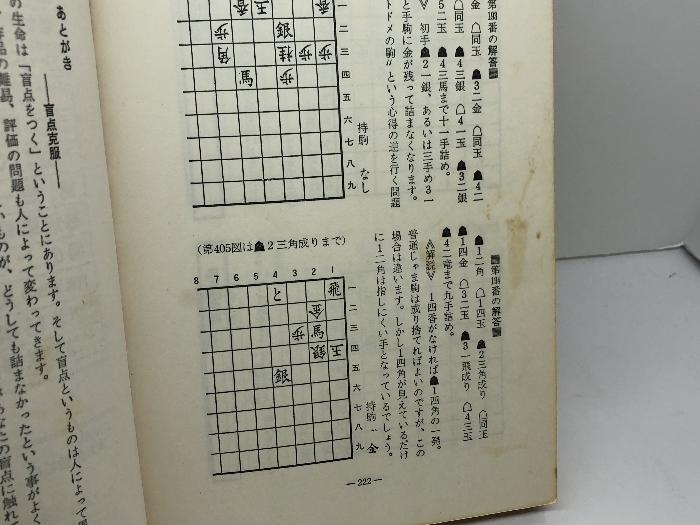 第198番の解答
金 △同玉 ▲3二金 △同玉 ▲4二
△同玉 ▲4三銀 △4一玉 ▲3二銀
5二玉 ▲4三馬まで十一手詰め。
初手▲2一銀、あるいは三手め3一
と手駒に金が残って詰まなくなります。
トドメの駒〟という心得の逆を行く問題
持駒 なし
一
二
三
四
五
六
七
八
九
玉
銀
歩
角
桂
歩
歩
馬
歩
第199番の解答
▲1二角 △1四玉 ▲2三角成り △同玉
▲1四金 △3二玉 ▲3一飛成り △4三玉
▲4二竜まで九手詰め。
《解説》 1四香がなければ▲1四角の一発。
普通じゃま駒は成り捨てればよいのですが、この
場合は違います。しかし1四角が見えているだけ
に1二角は指しにくい手となっているでしょう。
(第405図は▲2三角成りまで)
8 7 6 5 4 3 2 1
一
二
三
四
五
六
七
八
九
と
飛
金
歩
馬
銀
玉
銀
持駒 金
―222―
あとがき
――盲点克服――
の生命は「盲点をつく」ということにあります。そして盲点というものは人によって
作品の難易、評価の問題も人によって変わってきます。
ものが、どうしても詰まなかったという事がよく
なたの盲点に触れて